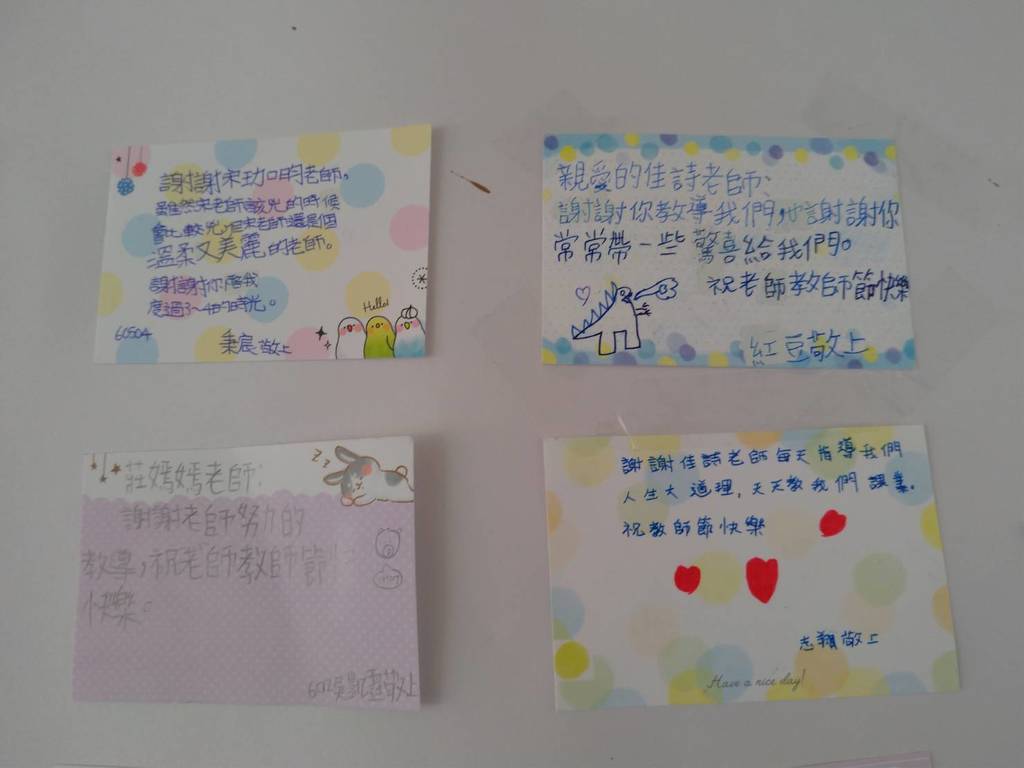 謝謝宋玏昀老師,
雖然宋老師該兇的時候
會比較兇,但宋老師還是個
溫柔又美麗的老師。
謝謝你陪我
度過3~4年的時光。
60504
秉宸 敬上
Hello!
親愛的佳詩老師:
謝謝你教導我們,也謝謝你
常常帶一些驚喜給我們。
祝老師教師節快樂
紅豆敬上
莊嫣嫣老師:
謝謝老師努力的
教導,祝老師教師節
快樂。
602吳凱 敬上
謝謝佳詩老師每天指導我們
人生大道理,天天教我們課業。
祝教師節快樂
志翔敬上
Have a nice day!